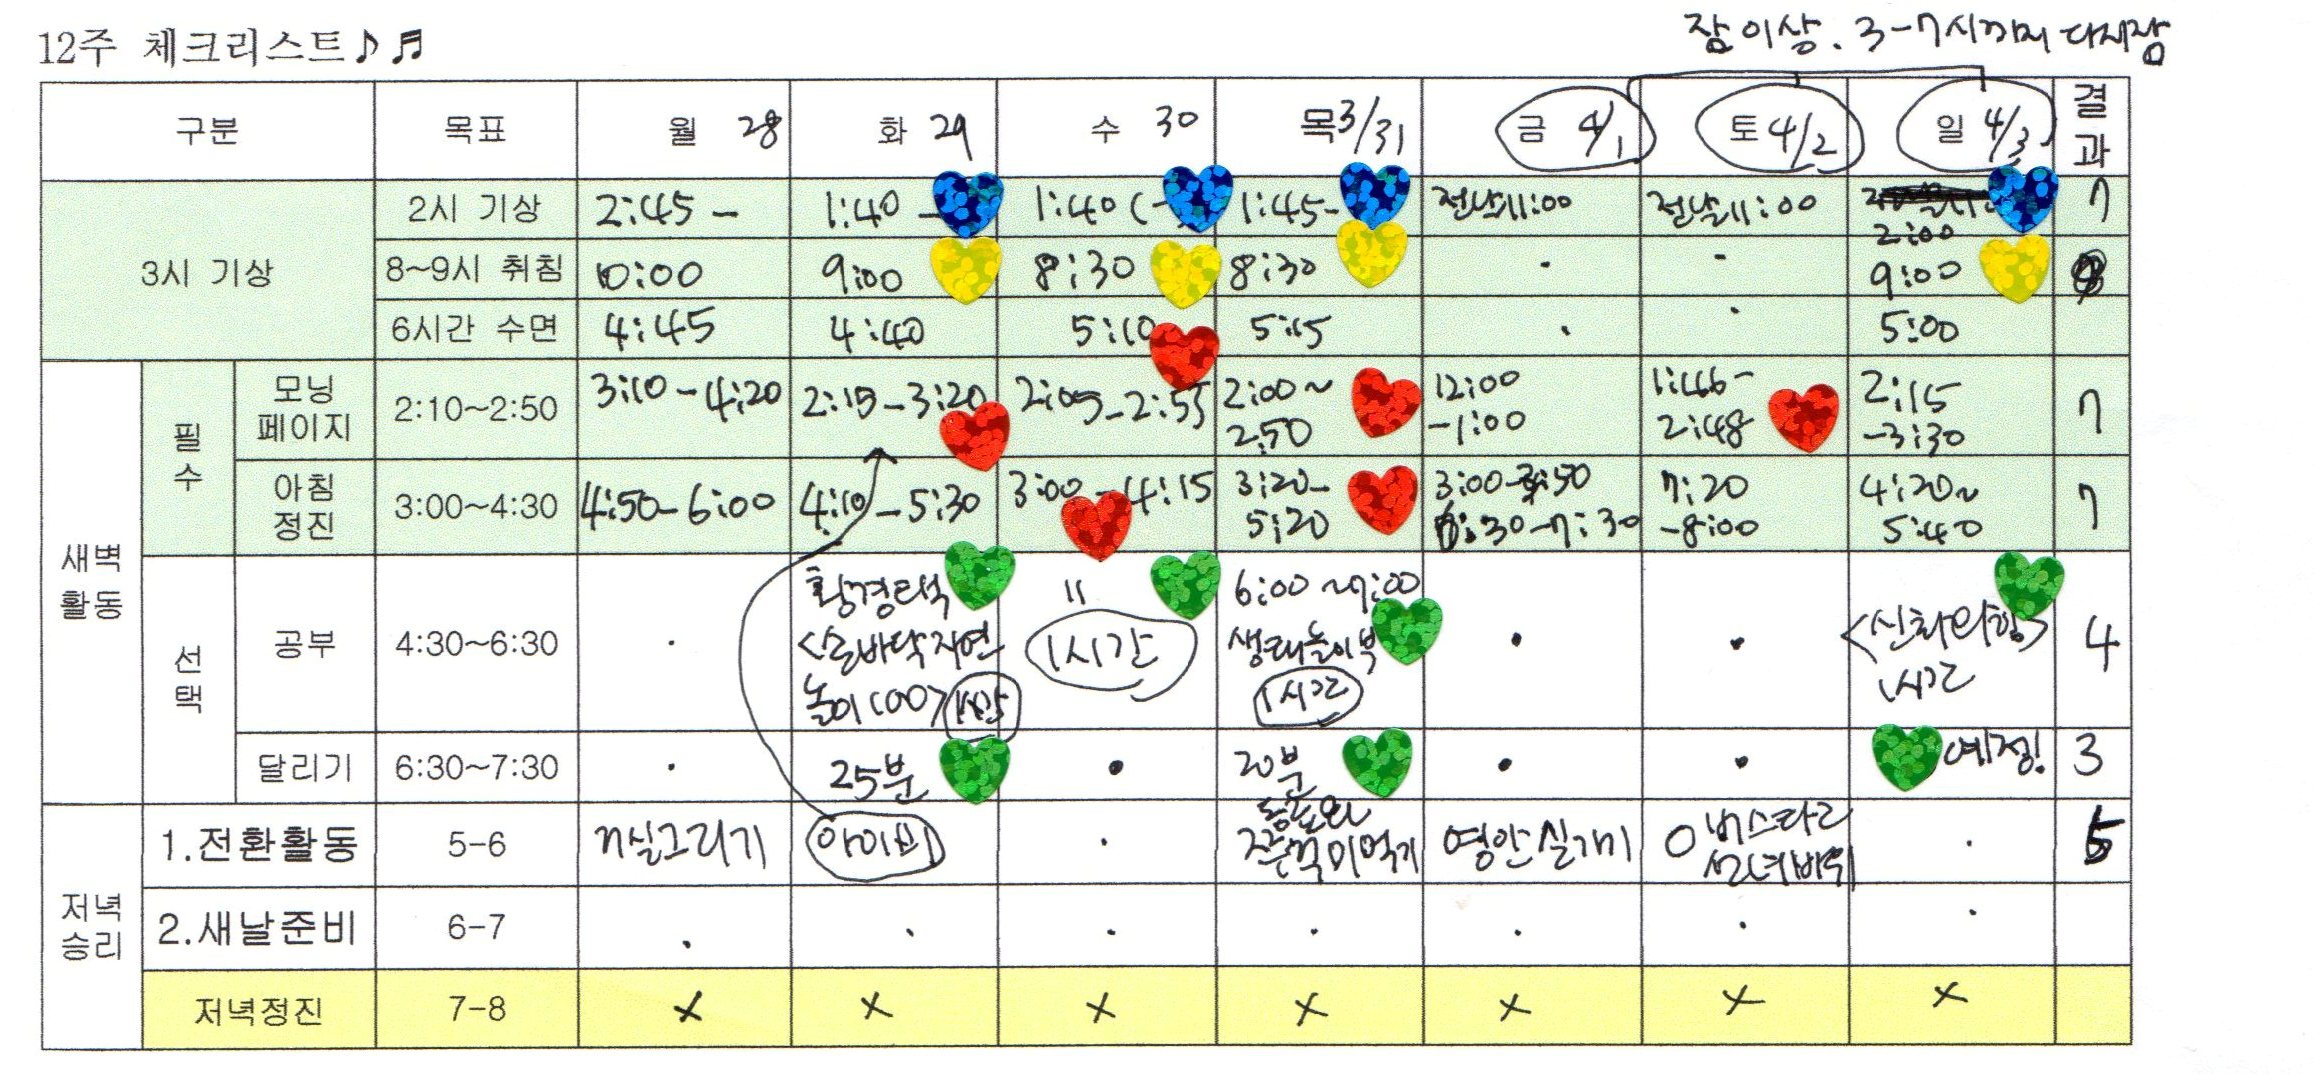 12주 체크리스트♪♬
잠 이상. 3-7시까지 다시잠
구분 목표 월 28 화 29 수 30 목 3/31 금 4/1 토 4/2 일 4/3 결과
3시 기상
2시 기상 2:45 - 1:40 - 1:40 ( - 1:45- 전날11:00 전날11:00 2:00 7
8~9시 취침 10:00 9:00 8:30 8:30 · · 9:00
6시간 수면 4:45 4:40 5:10 5:15 · · 5:00
새벽 활동
필수
모닝 페이지 2:10~2:50 3:10-4:20 2:15-3:20 2:05-2:55 2:00~ 2:50 12:00 -1:00 1:46- 2:48 2:15 -3:30 7
아침 정진 3:00~4:30 4:50-6:00 4:10-5:30 3:00-4:15 3:20- 5:20 3:00-3:50 6:30-7:30 7:20 -8:00 4:20~ 5:40 7
선택
공부 4:30~6:30 · 황경택 <손바닥자연 놀이100> 1시간 〃 1시간 6:00~7:00 생태놀이북 1시간 · · 1시간 4
달리기 6:30~7:30 · 25분 · 20분 · · 예정! 3
저녁 승리
1.전환활동 5-6 아이비 · 오버스타리 선녀바위 · 5
2.새날준비 6-7 · · · · · · ·
저녁정진 7-8 × × × × × × ×